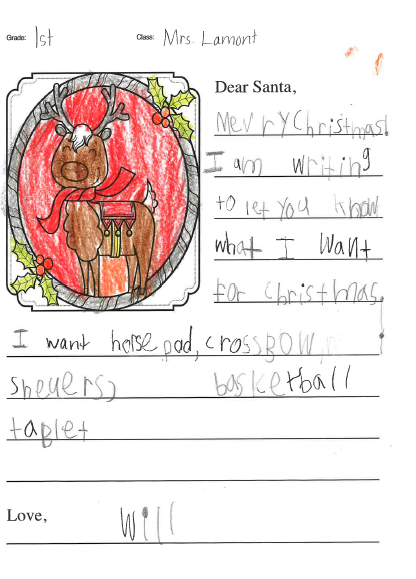 Grade: 1st Class: Mrs. Lamont
Dear Santa,
Merry Christmas!
I am writing
to let you know
what I want
for christmas.
I want horse pad, crossBow,
basketball
taBlet
Love, Will